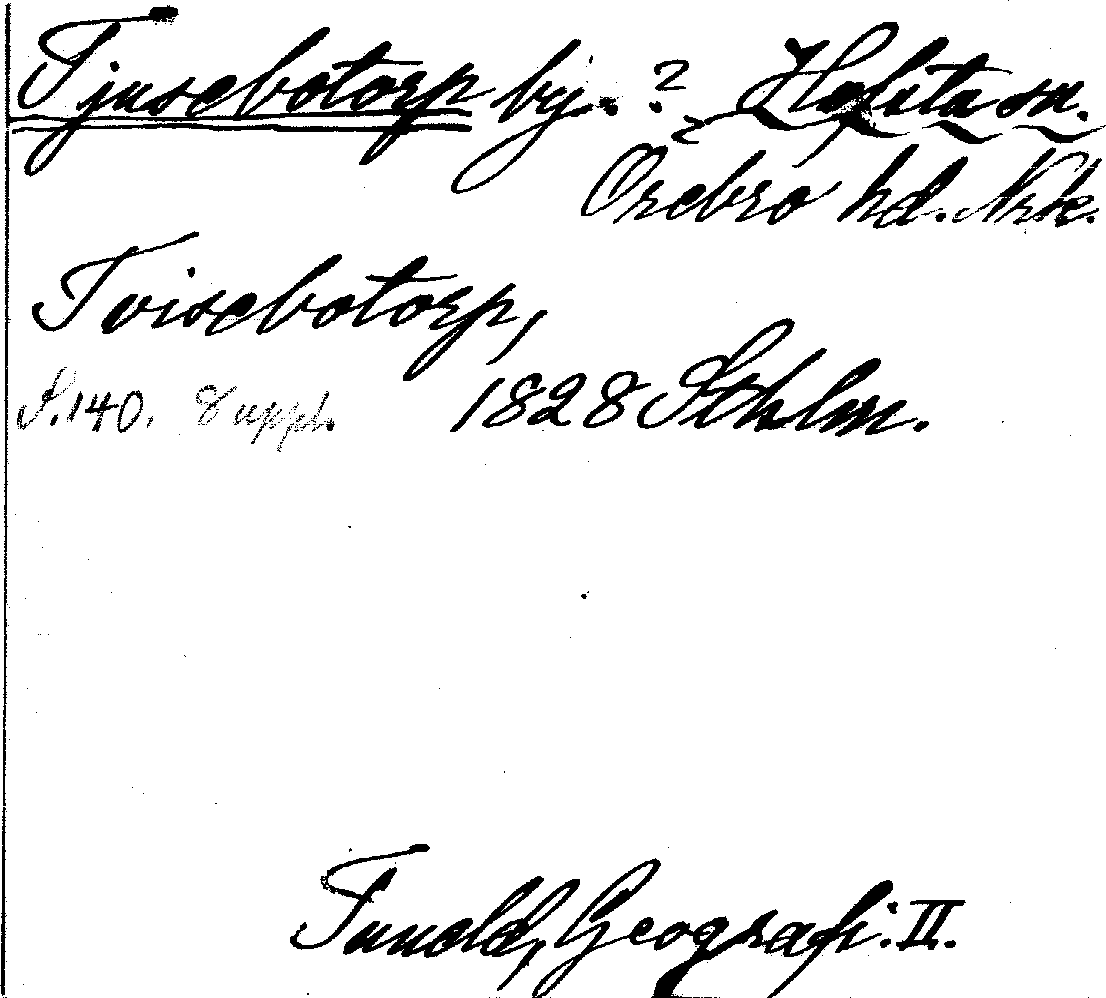 Tjusebotorp by. ? Hofsta sn.
Örebro hd. Nrk.
Tvisebotorp,
S. 140. Suppl. 1828 Sthlm.
Tuneld, Geografi. II.